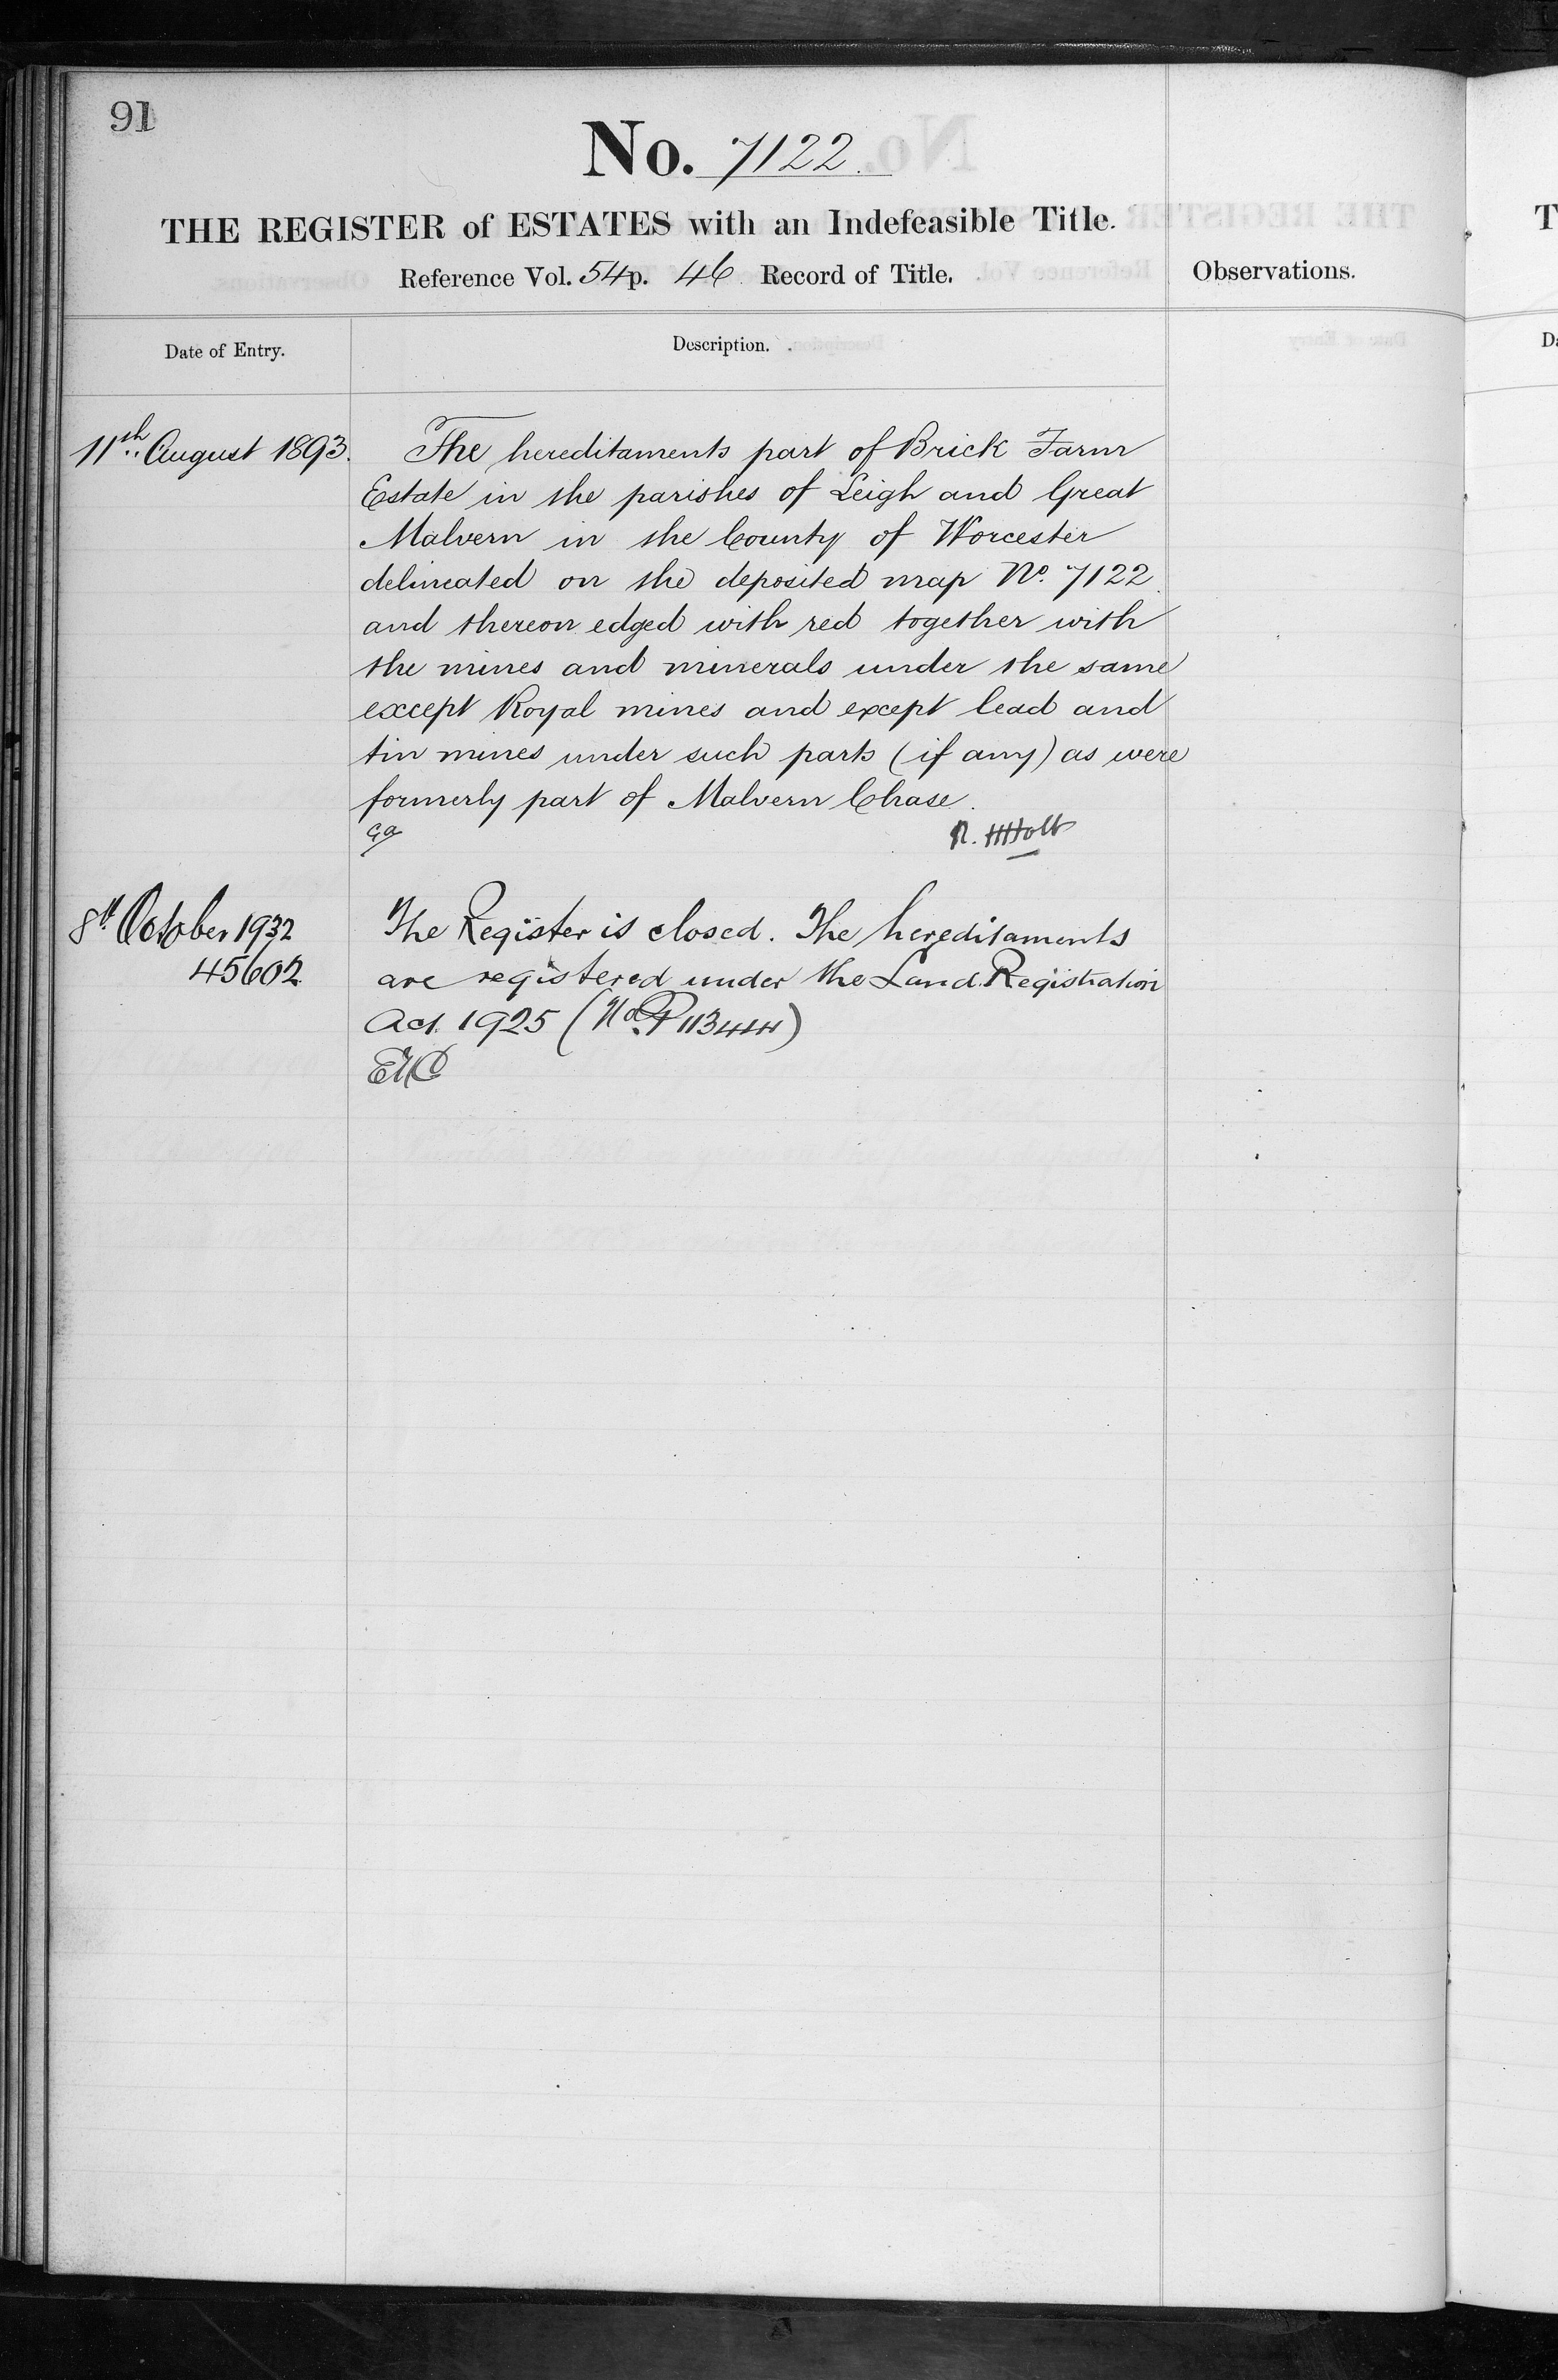 91
No. 7122.
THE REGISTER of ESTATES with an Indefeasible Title.
Reference Vol. 54 p. 46 Record of Title.
Observations.
Date of Entry.
Description.
11th August 1893.
The hereditaments part of Brick Farm
Estate in the parishes of Leigh and Great
Malvern in the County of Worcester
delineated on the deposited map No. 7122.
and thereon edged with red together with
the mines and minerals under the same
except Royal mines and except lead and
tin mines under such parts (if any) as were
formerly part of Malvern Chase.
R. H Holt
8th October 1932
45602
The Register is closed. The hereditaments
are registered under the Land Registration
Act. 1925 (No. P113444)